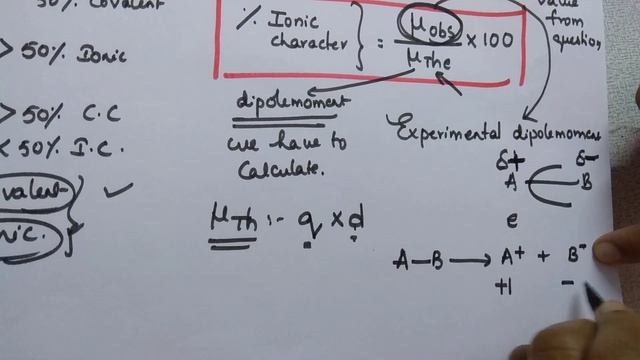 50% Covalent
> 50% Ionic
> 50% C.C
< 50% I.C.
% Ionic character } = μobs / μThe × 100
value from question
dipolemoment
we have to
Calculate.
Experimental dipolemoment
δ+ δ-
A B
e
μTh :- q × d
A-B → A+ + B-
+1 -